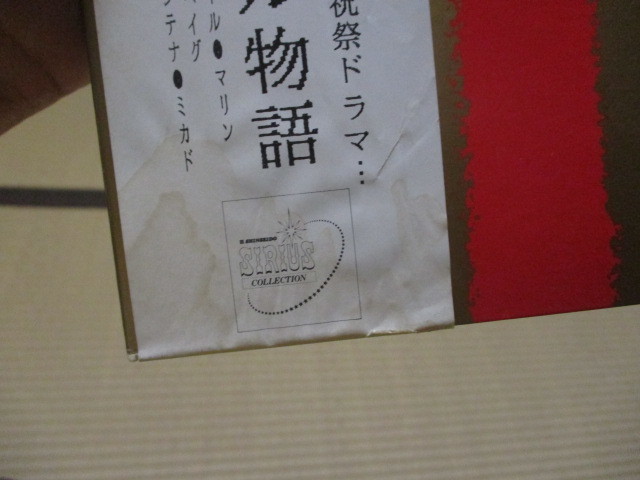 祝祭ドラマ…
ル物語
ル●マリン
イグ
テナ●ミカド
SIRIUS
COLLECTION